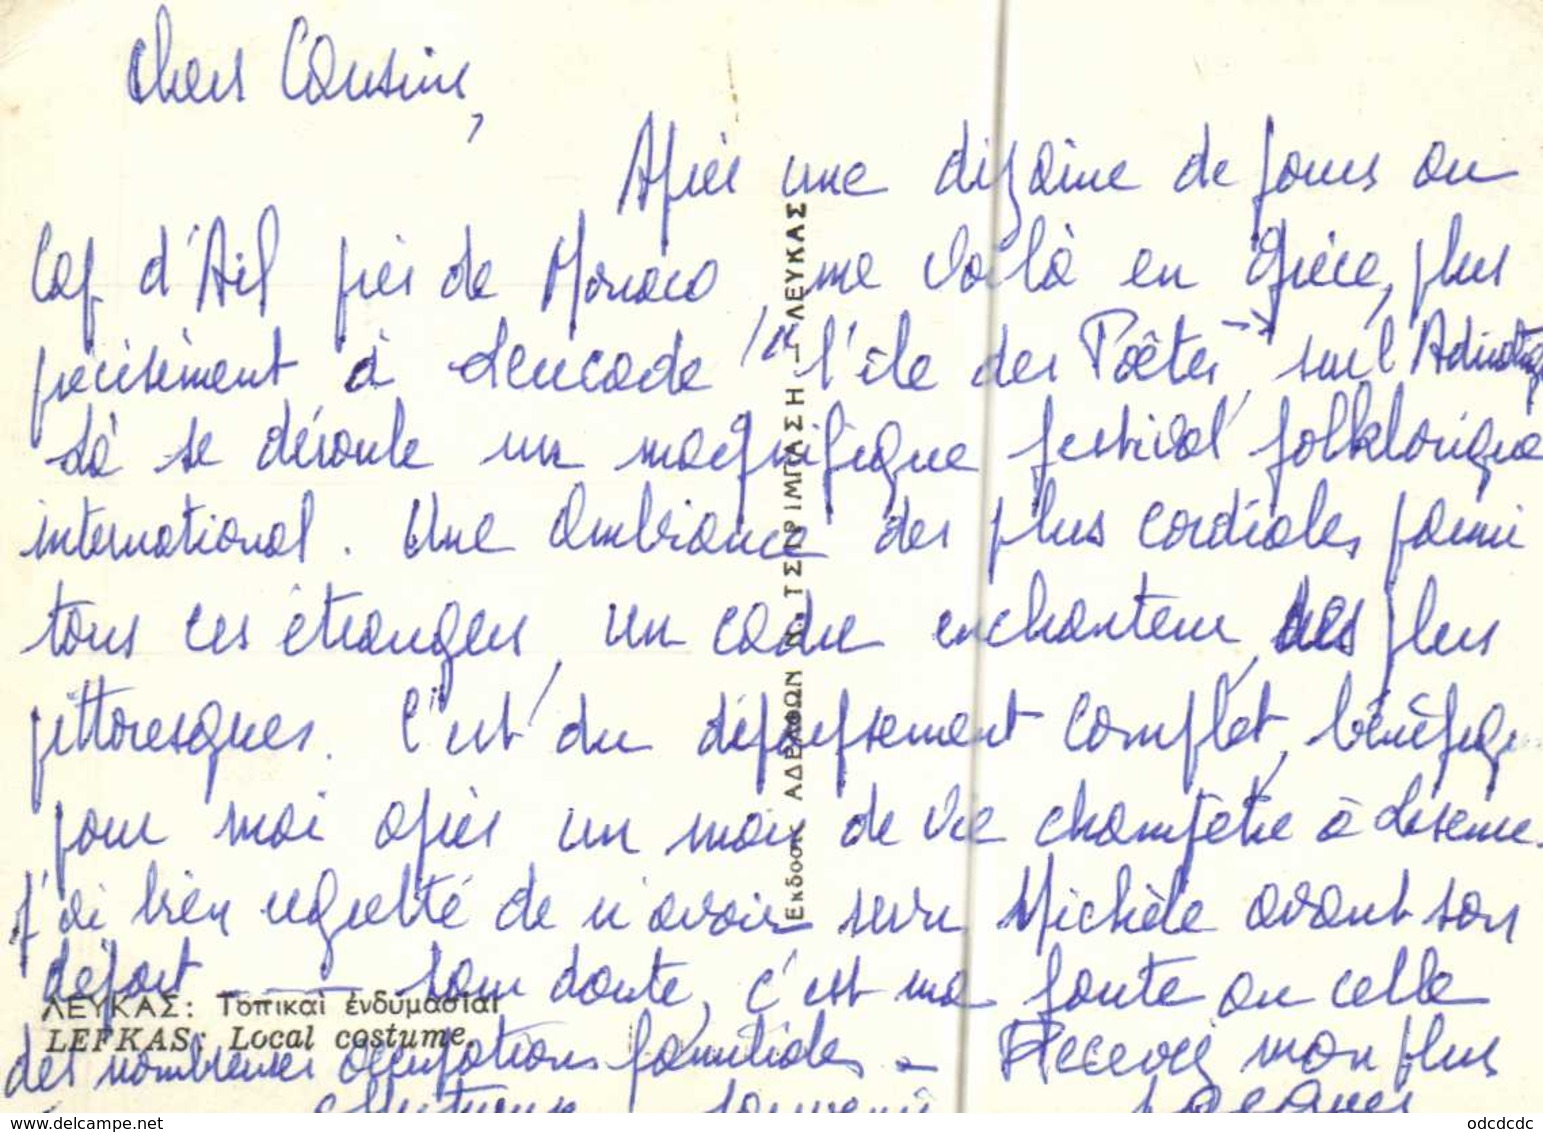 Chers Cousins,
Après une dizaine de jours au
Cap d'Ail près de Monaco, me voilà en Grèce, plus
précisément à Leucade "l'île des Poètes" sur l'Adriatique
Là se déroule un magnifique festival folklorique
international. Une ambiance des plus cordiales parmi
tous ces étrangers, un cadre enchanteur, des plus
pittoresques. C'est du dépaysement complet, bénéfique
pour moi après un mois de vie champêtre à
J'ai bien regretté de n'avoir revu Michèle avant son
départ sans doute, c'est ma faute ou celle
des nombreuses occupations familiales - Recevez mon plus
affectueux souvenir Jacques
ΛΕΥΚΑΣ: Τοπικαὶ ἐνδυμασίαι
LEFKAS: Local costume.
Εκδοσις ΑΔΕΛΦΩΝ Ν. ΤΣΙΡΙΜΠΑΣΗ - ΛΕΥΚΑΣ
www.delcampe.net
odcdcdc